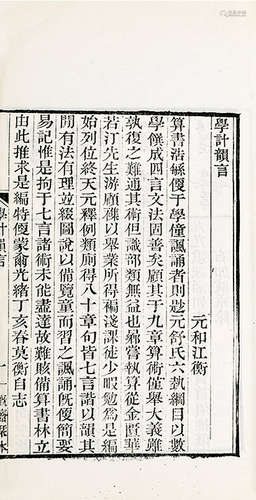 學計韻言
元和江衡
算書浩緐便于學僮諷誦者則赻元舒氏六執綱目以數
學㒋成四言文法固善矣顧其于九章算術僅舉大義難
執復之難通其術而識部類無益也衡嘗執算從金匱華
若汀先生游顧𥜥以舉業所得褊淺課徒少暇勉為是編
始列位終天元釋例類廁得八十章句皆七言諧以韻其
間有法有理竝綴圖說以備覽童而習之諷誦旣便簡要
易記惟是拘于七言諸術未能盡達故難賅備算書林立
由此推求是編特便蒙爾光緒丁亥春莫衡自志
學計韻言
一